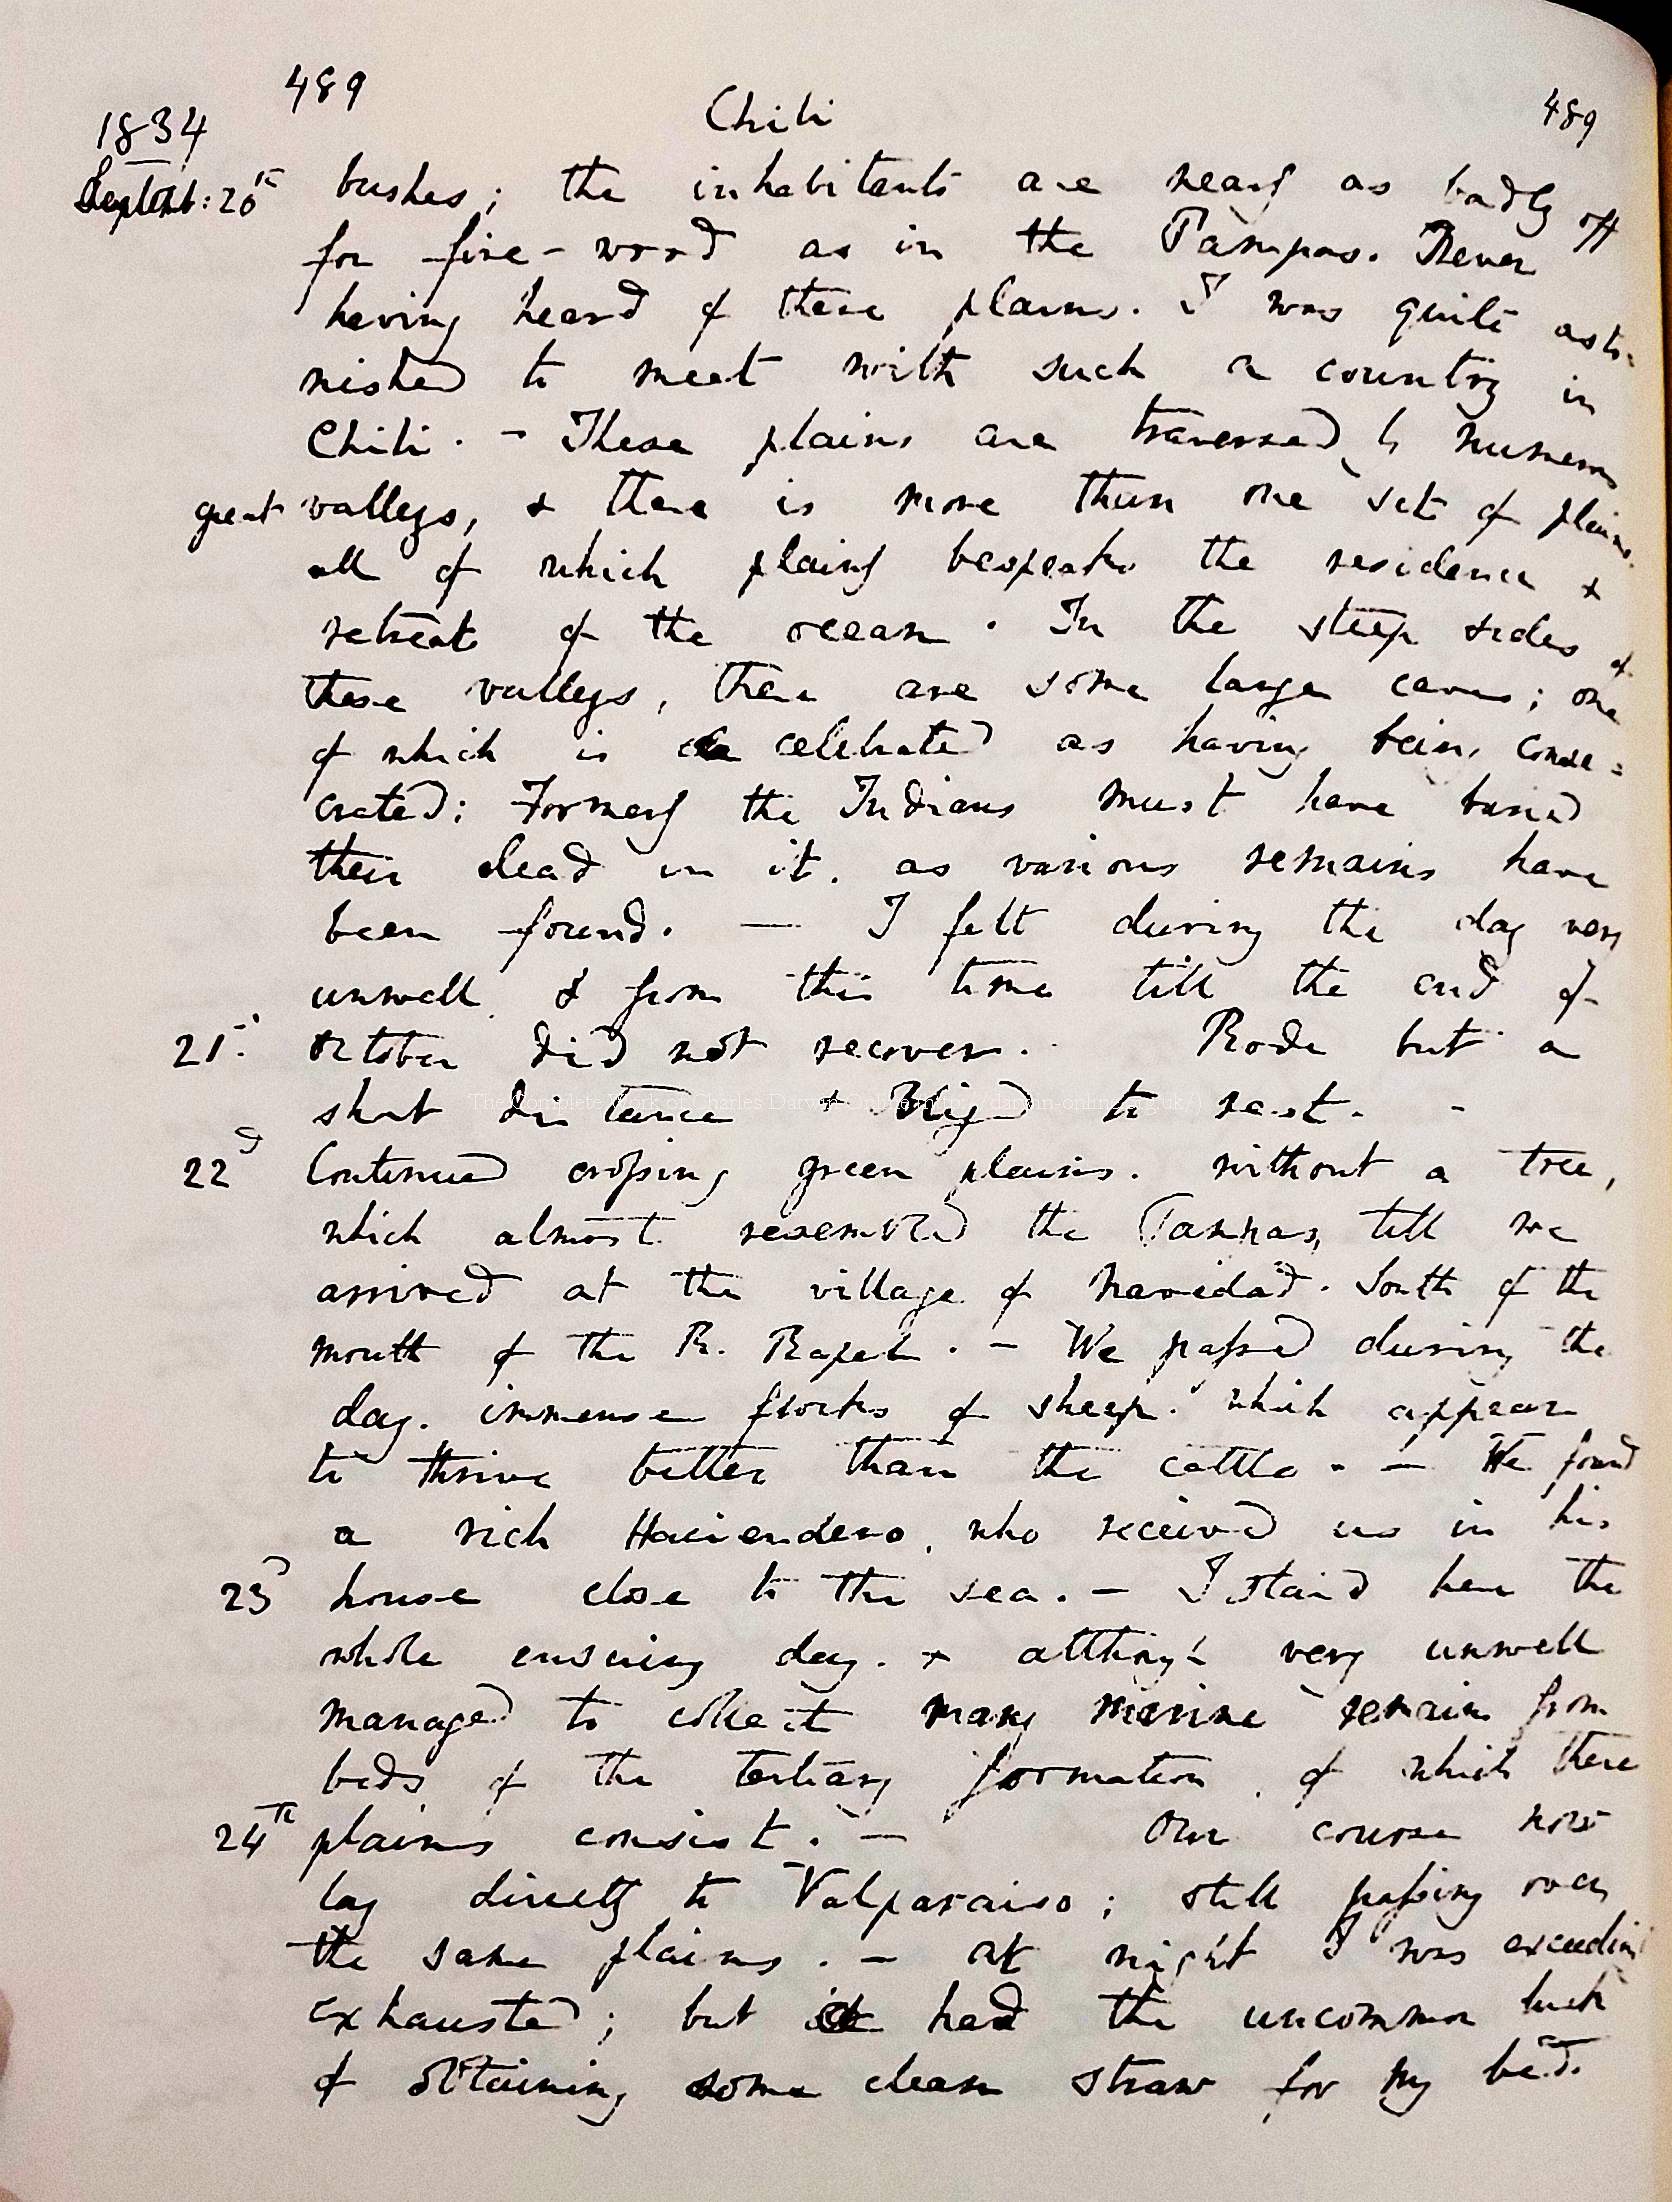 489 Chili 489
1834
Septemb: 20th bushes; the inhabitants are nearly as badly off
for fire-wood as in the Pampas. Never
having heard of these plains. I was quite asto-
nished to meet with such a country in
Chili. - These plains are traversed by numerous
great valleys, & there is more than one set of plains.
all of which plainly bespeaks the residence &
retreat of the ocean. In the steep sides of
these valleys, there are some large caves; one
of which is celebrated as having being conse=
crated: Formerly the Indians must have buried
their dead in it. as various remains have
been found. — I felt during the day very
unwell & from this time till the end of
21st October did not recover. Rode but a
short distance & obliged to rest. -
22d Continued crossing green plains. without a tree,
which almost resembled the Pampas, till we
arrived at the village of Navidad. South of the
mouth of the R. Rapel. - We passed during the
day. immense flocks of sheep. which appear
to thrive better than the cattle. - We found
a rich Haciendero, who received us in his
23d house close to the sea. - I staid here the
whole ensuing day. & although very unwell
managed to collect many marine remains from
beds of the tertiary formation, of which these
24th plains consist. - Our course now
lay directly to Valparaiso; still passing over
the same plains. - At night I was exceedingly
exhausted; but had the uncommon luck
of obtaining some clean straw for my bed.
The Complete Work of Charles Darwin Online